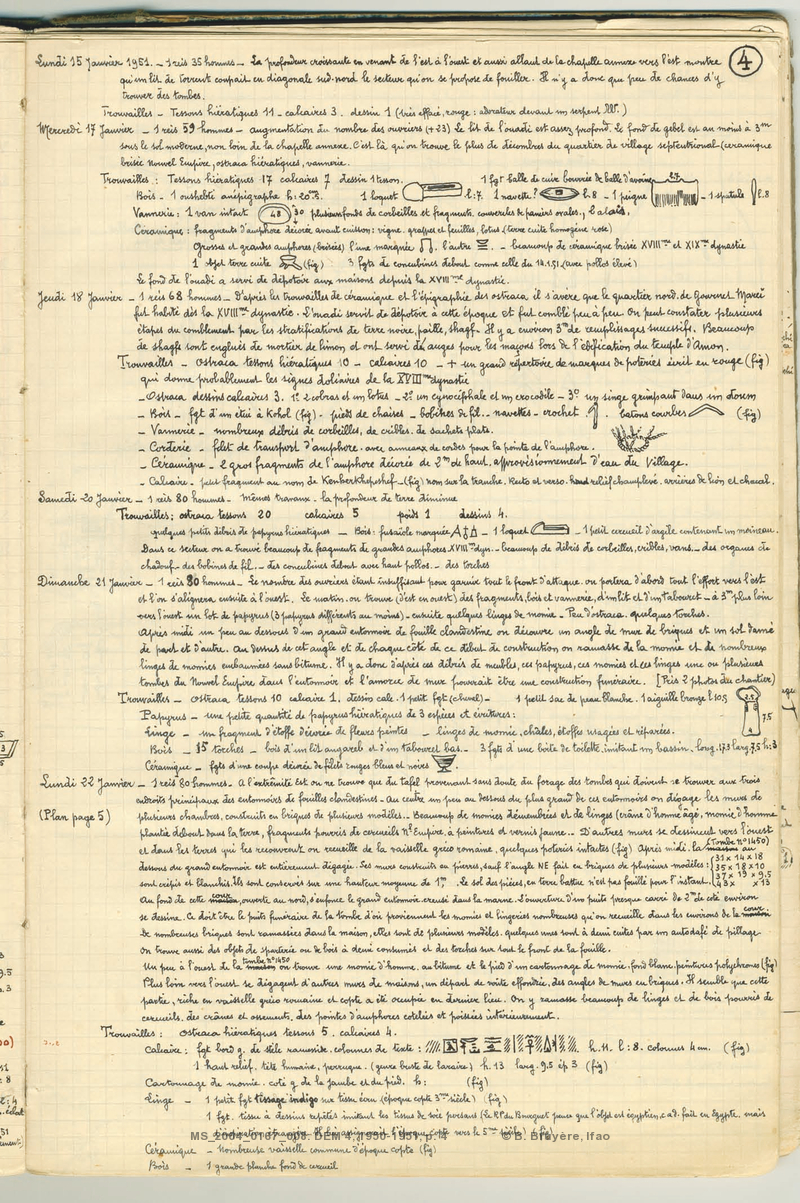 4
Lundi 15 Janvier 1951. - 1 reis 35 hommes - La profondeur croissante en venant de l'est à l'ouest et aussi allant de la chapelle annexe vers l'est montre
qu'un lit de torrent coupait en diagonale sud-nord le secteur qu'on se propose de fouiller. Il n'y a donc que peu de chances d'y
trouver des tombes.
Trouvailles - Tessons hiératiques 11 - calcaires 3. dessin 1 (très effacé, rouge : adorateur devant un serpent
Mercredi 17 Janvier - 1 reis 59 hommes - augmentation du nombre des ouvriers (+23) Le lit de l'ouadi est assez profond. Le fond de gebel est au moins à 3m
sous le sol moderne, non loin de la chapelle annexe. C'est là qu'on trouve le plus de décombres du quartier de village septentrional (céramique
brisée Nouvel Empire, ostraca hiératiques, vannerie.
Trouvailles : Tessons hiératiques 17 calcaires 7 dessin 1 tesson. 1 fgt balle de cuir bourrée de balle d'avoine
Bois - 1 oushebti anépigraphe h: 20 1 loquet l:7. 1 navette? l:8 - 1 peigne - 1 spatule l.8
Vannerie : 1 van intact 48 30 plusieurs fonds de corbeilles et fragments. couvercles de paniers ovales, balais.
Céramique : fragments d'amphore décorée avant cuisson : vigne. grappes et feuilles, lotus (terre cuite homogène rose)
Grosses et grandes amphores (brisées) l'une marquée l'autre - beaucoup de céramique brisée XVIIIme et XIXme dynastie
1 objet terre cuite (fig) 3 fgts de concubines debout comme celle du 14.1.51 (avec pollos élevé)
Le fond de l'ouadi a servi de dépotoir aux maisons depuis la XVIIIme dynastie.
Jeudi 18 Janvier - 1 reis 68 hommes - D'après les trouvailles de céramique et l'épigraphie des ostraca il s'avère que le quartier nord de Gournet Mareï
fut habité dès la XVIIIme dynastie. L'ouadi servit de dépotoir à cette époque et fut comblé peu à peu. On peut constater plusieurs
étapes du comblement par les stratifications de terre noire, paille, shagf. Il y a environ 3m de remplissages successifs. Beaucoup
de shagfs sont englués de mortier de limon et ont servi de auges pour les maçons lors de l'édification du temple d'Amon.
Trouvailles - Ostraca tessons hiératiques 10 - calcaires 10 - + un grand répertoire de marques de poteries écrit en rouge (fig)
qui donne probablement les signes doliaires de la XVIIIme dynastie
- Ostraca dessins calcaires 3. 1° 2 cobras et un lotus - 2° un cynocéphale et un crocodile - 3° un singe grimpant dans un doum
- Bois - fgt d'un étui à Kohol (fig) - pieds de chaises - bobines de fil - navettes - crochet . bâtons courbes (fig)
- Vannerie - nombreux débris de corbeilles, de cribles, de sachets plats.
- Corderie - filet de transport d'amphore. avec anneaux de cordes pour la pointe de l'amphore.
- Céramique - 2 gros fragments de l'amphore décorée de 2m de haut. approvisionnement d'eau du Village.
- Calcaire - petit fragment au nom de Kenherkhepeshef - (fig) nom sur la tranche. Recto et verso relief champlevé. arrières de lion et cheval.
Samedi 20 Janvier - 1 reis 80 hommes - Mêmes travaux - la profondeur de terre diminue
Trouvailles : ostraca tessons 20 calcaires 5 poids 1 dessins 4.
quelques petits débris de papyrus hiératiques - Bois : fusaïole marquée - 1 loquet - 1 petit cercueil d'argile contenant un moineau.
Dans ce secteur on a trouvé beaucoup de fragments de grandes amphores XVIIIme dyn. - beaucoup de débris de corbeilles, cribles, vans - des organes de
chadouf - des bobines de fil - des concubines debout avec haut pollos. - des torches
Dimanche 21 Janvier - 1 reis 80 hommes - Le nombre des ouvriers étant insuffisant pour garnir tout le front d'attaque. on portera d'abord tout l'effort vers l'est
et l'on s'alignera ensuite à l'ouest. Le matin on trouve (d'est en ouest) des fragments, bois et vannerie, d'un lit et d'un tabouret - à 3m plus loin
vers l'ouest un lot de papyrus (3 papyrus différents au moins) - ensuite quelques linges de momie - Peu d'ostraca. quelques torches.
Après midi un peu au dessous d'un grand entonnoir de fouille clandestine on découvre un angle de mur de briques et un sol damé
de part et d'autre. Au dessus de cet angle et de chaque côté de ce début de construction on ramasse de la momie et de nombreux
linges de momies embaumées sans bitume. Il y a donc d'après ces débris de meubles, ces papyrus, ces momies et ces linges une ou plusieurs
tombes du Nouvel Empire dans l'entonnoir et l'amorce de mur pourrait être une construction funéraire. [Pris 2 photos du chantier)
Trouvailles - Ostraca tessons 10 calcaire 1. dessin calc. 1 petit fgt (cheval) - 1 petit sac de peau blanche. 1 aiguille bronze l 10.5
Papyrus - une petite quantité de papyrus hiératiques de 3 espèces et écritures : 7.5
Linge - un fragment d'étoffe décorée de fleurs peintes - linges de momie, châles, étoffes usagées et réparées.
Bois - 15 torches - bois d'un lit angareb et d'un tabouret bas - 3 fgts d'une boîte de toilette. imitant un bassin. long. 17.3 larg. 7.5 h:3
Céramique - fgts d'une coupe décorée de filets rouges bleus et noirs
Lundi 22 Janvier - 1 reis 80 hommes - A l'extrémité Est on ne trouve que du tafel provenant sans doute du forage des tombes qui doivent se trouver aux trois
endroits principaux des entonnoirs de fouilles clandestines - Au centre un peu au dessous du plus grand de ces entonnoirs on dégage les murs de
(Plan page 5) plusieurs chambres, construits en briques de plusieurs modèles. - Beaucoup de momies démembrées et de linges (crâne d'homme âgé, momie d'homme
plantée debout dans la terre, fragments pourris de cercueils Nl Empire, à peintures et vernis jaune. - D'autres murs se dessinent vers l'ouest
et dans les terres qui les recouvrent on recueille de la vaisselle gréco romaine, quelques poteries intactes (fig) Après midi. la maison au (Tombe n° 1450)
dessous du grand entonnoir est entièrement dégagée. Ses murs construits en pierres, sauf l'angle NE fait en briques de plusieurs modèles : 31 x 14 x 18
35 x 18 x 10
37 x 19 x 9.5
43 x x 13
sont crépis et blanchis. Ils sont conservés sur une hauteur moyenne de 1m. Le sol des pièces, en terre battue n'est pas fouillé pour l'instant.
Au fond de cette maison cour, ouverte au nord, s'enfonce le grand entonnoir creusé dans la marne. L'ouverture d'un puits presque carré de 2m de côté environ
se dessine. Ce doit être le puits funéraire de la tombe d'où proviennent les momies et lingeries nombreuses qu'on recueille dans les environs de la maison cour.
De nombreuses briques sont ramassées dans la maison, elles sont de plusieurs modèles. quelques unes sont à demi cuites par un autodafé de pillage
On trouve aussi des objets de sparterie ou de bois à demi consumés et des torches sur tout le front de la fouille.
Un peu à l'ouest de la maison tombe n° 1450 on trouve une momie d'homme. au bitume et le pied d'un cartonnage de momie. fond blanc. peintures polychromes (fig)
Plus loin vers l'ouest se dégagent d'autres murs de maisons, un départ de voûte effondrée, des angles de murs en briques. Il semble que cette
partie, riche en vaisselle gréco romaine et copte a été occupée en dernier lieu. On y ramasse beaucoup de linges et de bois pourris de
cercueils. des crânes et ossements. des pointes d'amphores cotelées et poissées intérieurement.
Trouvailles : ostraca hiératiques tessons 5. calcaires 4.
Calcaire : fgt bord g. de stèle ramesside. colonnes de texte : h. 11. l : 8. colonnes 4 cm. (fig)
1 haut relief. tête humaine, perruque. (genre buste de laraire) h. 13 larg. 9.5 ép 3 (fig)
Cartonnage de momie. coté g de la jambe et du pied. h: (fig)
Linge - 1 petit fgt tissage indigo sur tissu écru (époque copte 3me siècle) (fig)
1 fgt. tissu à dessins répétés imitant les tissus de soie persans (Le RP du Bourguet pense que l'objet est égyptien, c.a.d. fait en Egypte. mais
Céramique - Nombreuse vaisselle commune d'époque copte (fig)
Bois - 1 grande planche fond de cercueil
MS_2004_0167_008. DEM 4, 1950-1951, p. 4 © B. Bruyère, Ifao